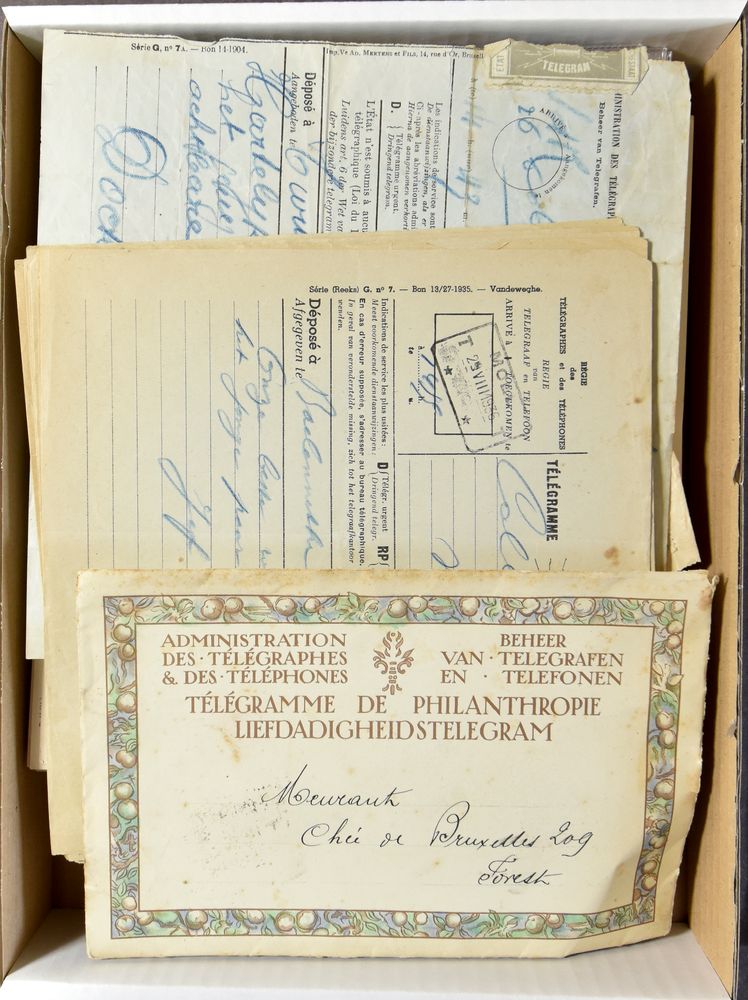 Série G, nº 7A. — Bon 14-1904.
Imp. Ve AD. MERTENS et FILS, 14, rue d'Or, Bruxell
TELEGRAM
ETAT
MINISTRATION DES TÉLÉGRAP
Beheer van Telegrafen.
ARRIVÉ
Aangekomen te
26
Les indications de service sont
De dienstaanwijzingen, als er
Ci-après les abréviations admi
Hierna de aangenomen verkorti
D. { Télégramme urgent.
Dringend telegram.
L'État n'est soumis à aucu
télégraphique (Loi du 1
Luidens art. 6 der Wet va
der bijzondere telegram
Déposé à
Aangeboden te
Hartelijk
het
Série (Reeks) G. nº 7. — Bon 13/27-1935. — Vandeweghe.
RÉGIE
des
TÉLÉGRAPHES et des TÉLÉPHONES
REGIE
van
TELEGRAAF en TELEFOON
ARRIVÉ à
TOEGEKOMEN te
T
29 VIII 1936
à
te
h.
u.
TÉLÉGRAMME
Indications de service les plus usitées:
Meest voorkomende dienstaanwijzingen:
D { Télégr. urgent
Dringend telegr.
RP
En cas d'erreur supposée, s'adresser au bureau télégraphique.
In geval van veronderstelde missing, zich tot het telegraafkantoor
wenden.
Déposé à
Afgegeven te
Onze beste
het jonge paar
Jef
ADMINISTRATION
DES · TÉLÉGRAPHES
& DES · TÉLÉPHONES
BEHEER
VAN · TELEGRAFEN
EN · TELEFONEN
TÉLÉGRAMME DE PHILANTHROPIE
LIEFDADIGHEIDSTELEGRAM
Meurant
Chée de Bruxelles 209
Forest